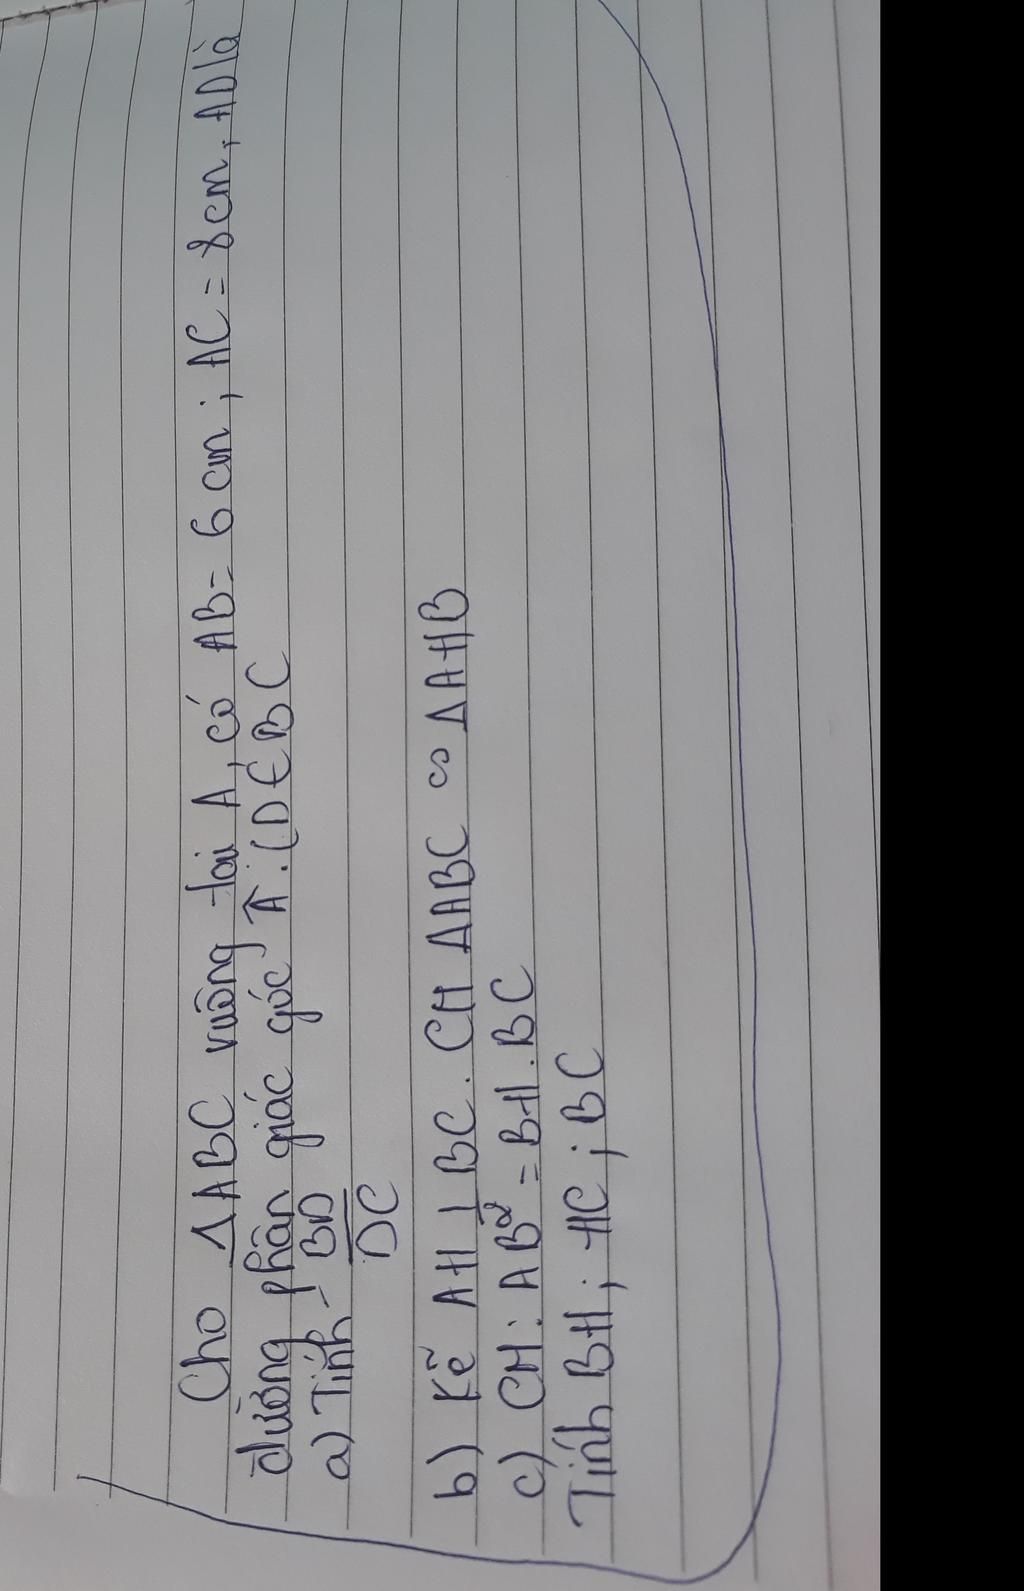 Cho ΔABC vuông tại A, có AB = 6 cm ; AC = 8 cm, AD là
đường phân giác góc A. (D ∈ BC
a) Tính BD/DC
b) Kẽ AH ⊥ BC. CM ΔABC ∽ ΔAHB
c) CM: AB² = BH.BC
Tính BH ; HC ; BC